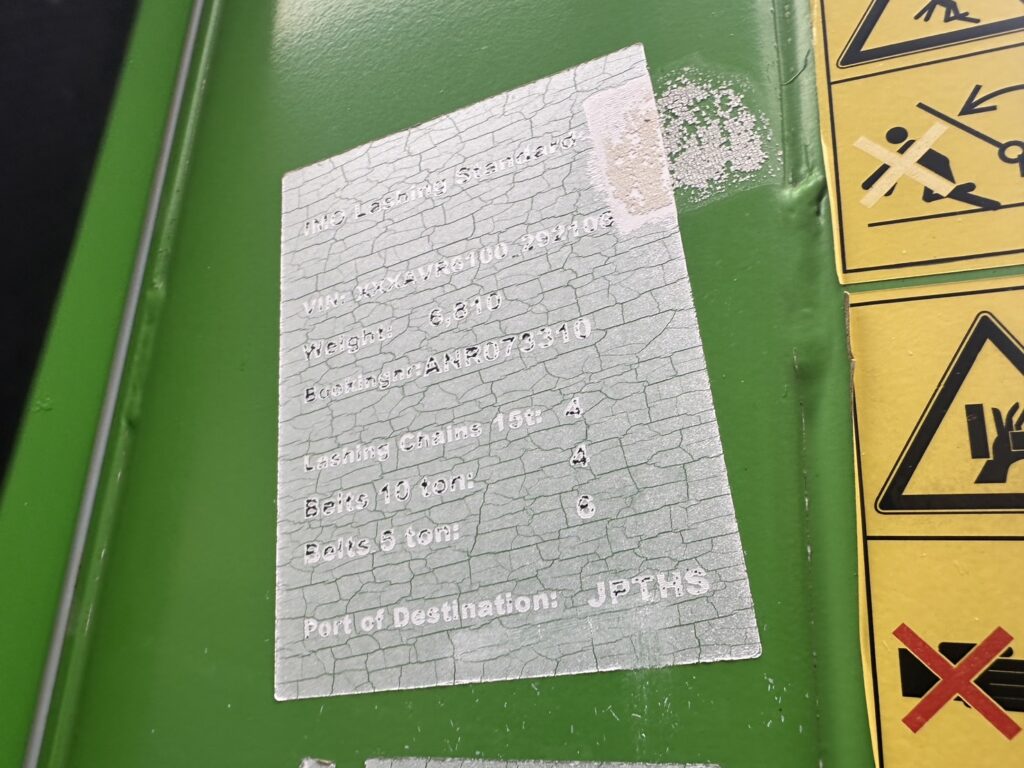 IMO Lashing Standard
VIN: XXXAVR6100_292106
Weight: 6,810
Bookingnr: ANR073310
Lashing Chains 15t: 4
Belts 10 ton: 4
Belts 5 ton: 6
Port of Destination: JPTHS